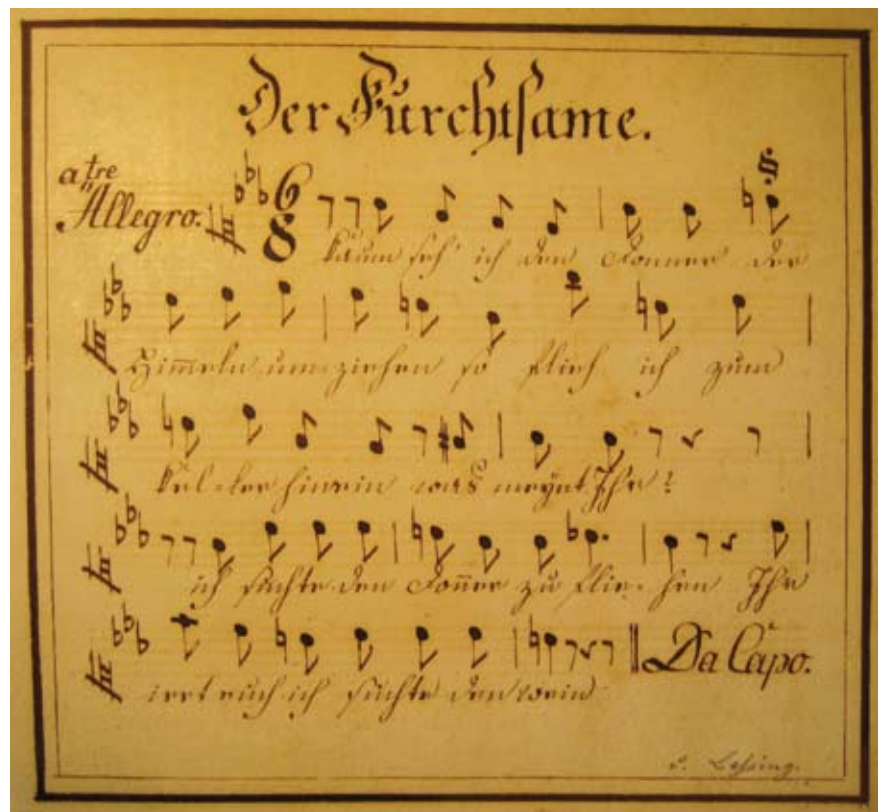 Der Furchtsame.
a tre
Allegro.
6
8
Kaum seh' ich den Donner der
Himeln um-ziehen so flieh ich zum
Kel-ler hinein was meynt Ihr?
ich suchte den Doner zu flie-hen Ihr
irrt euch ich suchte den wein
Da Capo.
v. Lessing.